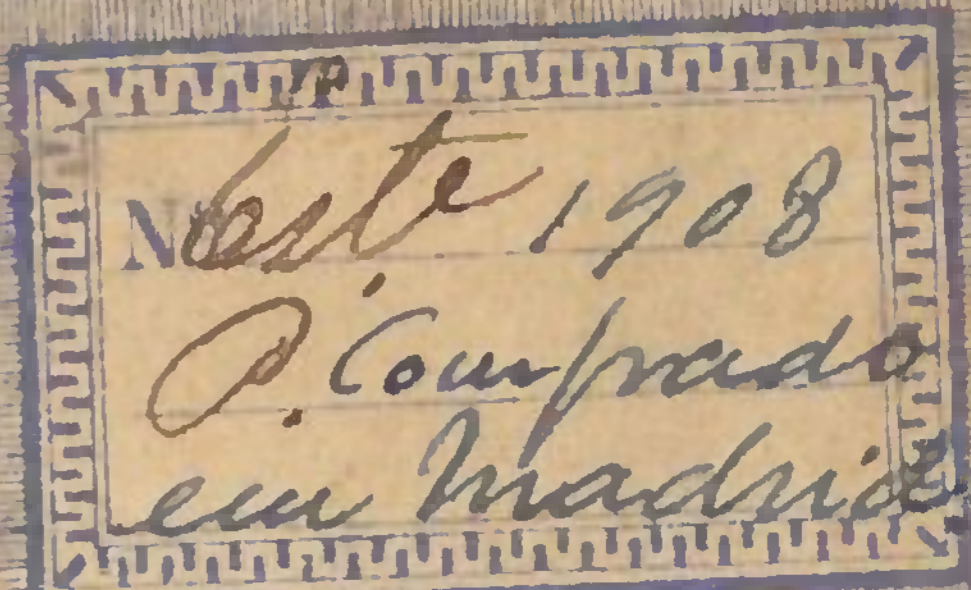 Este 1908
P. Comprado
em Madrid